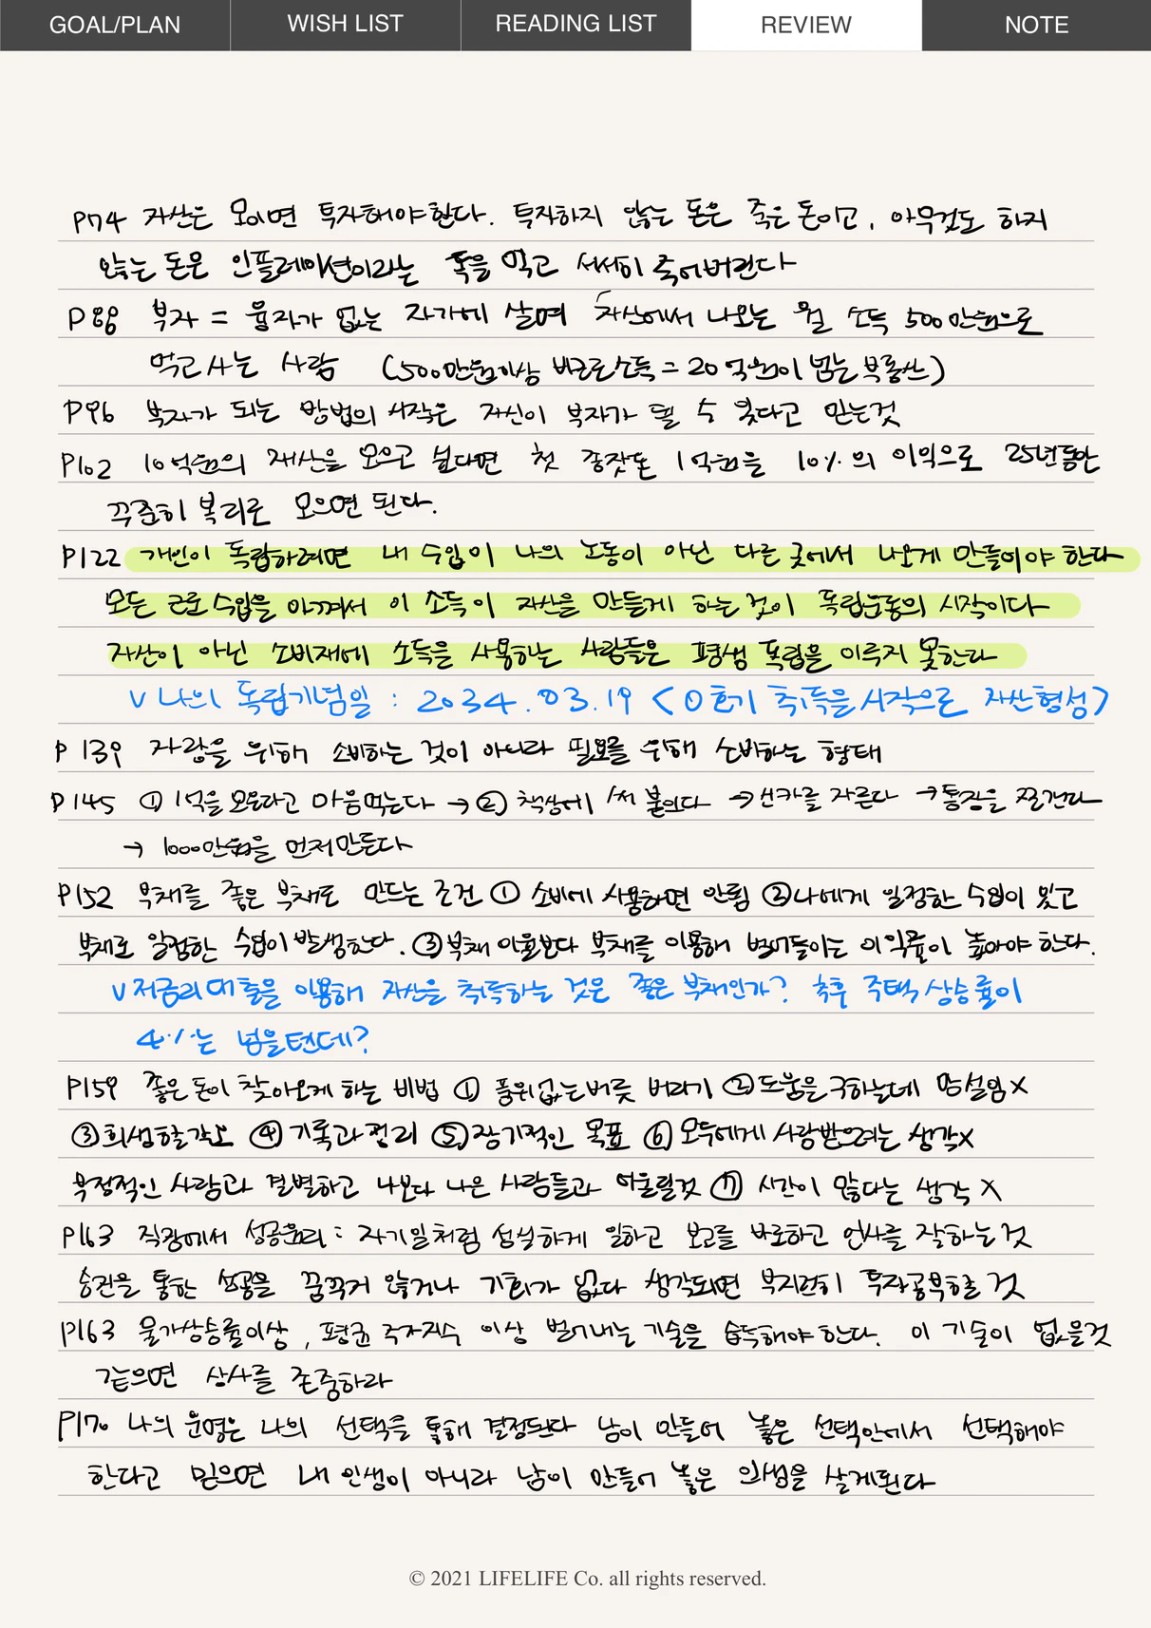 GOAL/PLAN WISH LIST READING LIST REVIEW NOTE
P74 자산은 모이면 투자해야한다. 투자하지 않는 돈은 죽은 돈이고, 아무것도 하지
않는 돈은 인플레이션이라는 독을 먹고 서서히 죽어버린다
P88 부자 = 융자가 없는 자가에 살며 자산에서 나오는 월 소득 500만원으로
먹고 사는 사람 (500만원이상 비근로소득 = 20억원이 넘는 부동산)
P96 부자가 되는 방법의 시작은 자신이 부자가 될 수 있다고 믿는것
P102 10억원의 재산을 모으고 싶다면 첫 종잣돈 1억원을 10%의 이익으로 25년동안
꾸준히 복리로 모으면 된다.
P122 개인이 독립하려면 내 수입이 나의 노동이 아닌 다른 곳에서 나오게 만들어야 한다
모든 근로수입을 아껴서 이 소득이 자산을 만들게 하는 것이 독립운동의 시작이다
자산이 아닌 소비재에 소득을 사용하는 사람들은 평생 독립을 이루지 못한다
V 나의 독립기념일 : 2034.03.19 <0호기 취득을 시작으로 자산형성>
P 139 자랑을 위해 소비하는 것이 아니라 필요를 위해 소비하는 형태
P145 ① 1억을 모은다고 마음먹는다 → ② 책상에 써 붙인다 → 신카를 자른다 → 통장을 쪼갠다
→ 1000만원을 먼저만든다
P152 부채를 좋은 부채로 만드는 조건 ① 소비에 사용하면 안됨 ② 나에게 일정한 수입이 있고
부채로 일정한 수입이 발생한다. ③ 부채 이율보다 부채를 이용해 벌어들이는 이익률이 높아야 한다.
V 저금리 대출을 이용해 자산을 취득하는 것은 좋은 부채인가? 추후 주택 상승률이
4%는 넘을텐데?
P159 좋은 돈이 찾아오게 하는 비법 ① 품위없는 버릇 버리기 ② 도움을 구하는데 망설임 X
③ 희생할각오 ④ 기록과 정리 ⑤ 장기적인 목표 ⑥ 모두에게 사랑받으려는 생각X
부정적인 사람과 결별하고 나보다 나은 사람들과 어울릴것 ⑦ 시간이 많다는 생각 X
P163 직장에서 성공원리 : 자기일처럼 성실하게 일하고 보고를 바로하고 인사를 잘하는 것
승진을 통한 성공을 꿈꾸지 않거나 기회가 없다 생각되면 부지런히 투자공부할 것
P163 물가상승률이상, 평균 주가지수 이상 벌어내는 기술을 습득해야 한다. 이 기술이 없을것
같으면 상사를 존중하라
P170 나의 운명은 나의 선택을 통해 결정된다 남이 만들어 놓은 선택안에서 선택해야
한다고 믿으면 내 인생이 아니라 남이 만들어 놓은 인생을 살게된다
© 2021 LIFELIFE Co. all rights reserved.